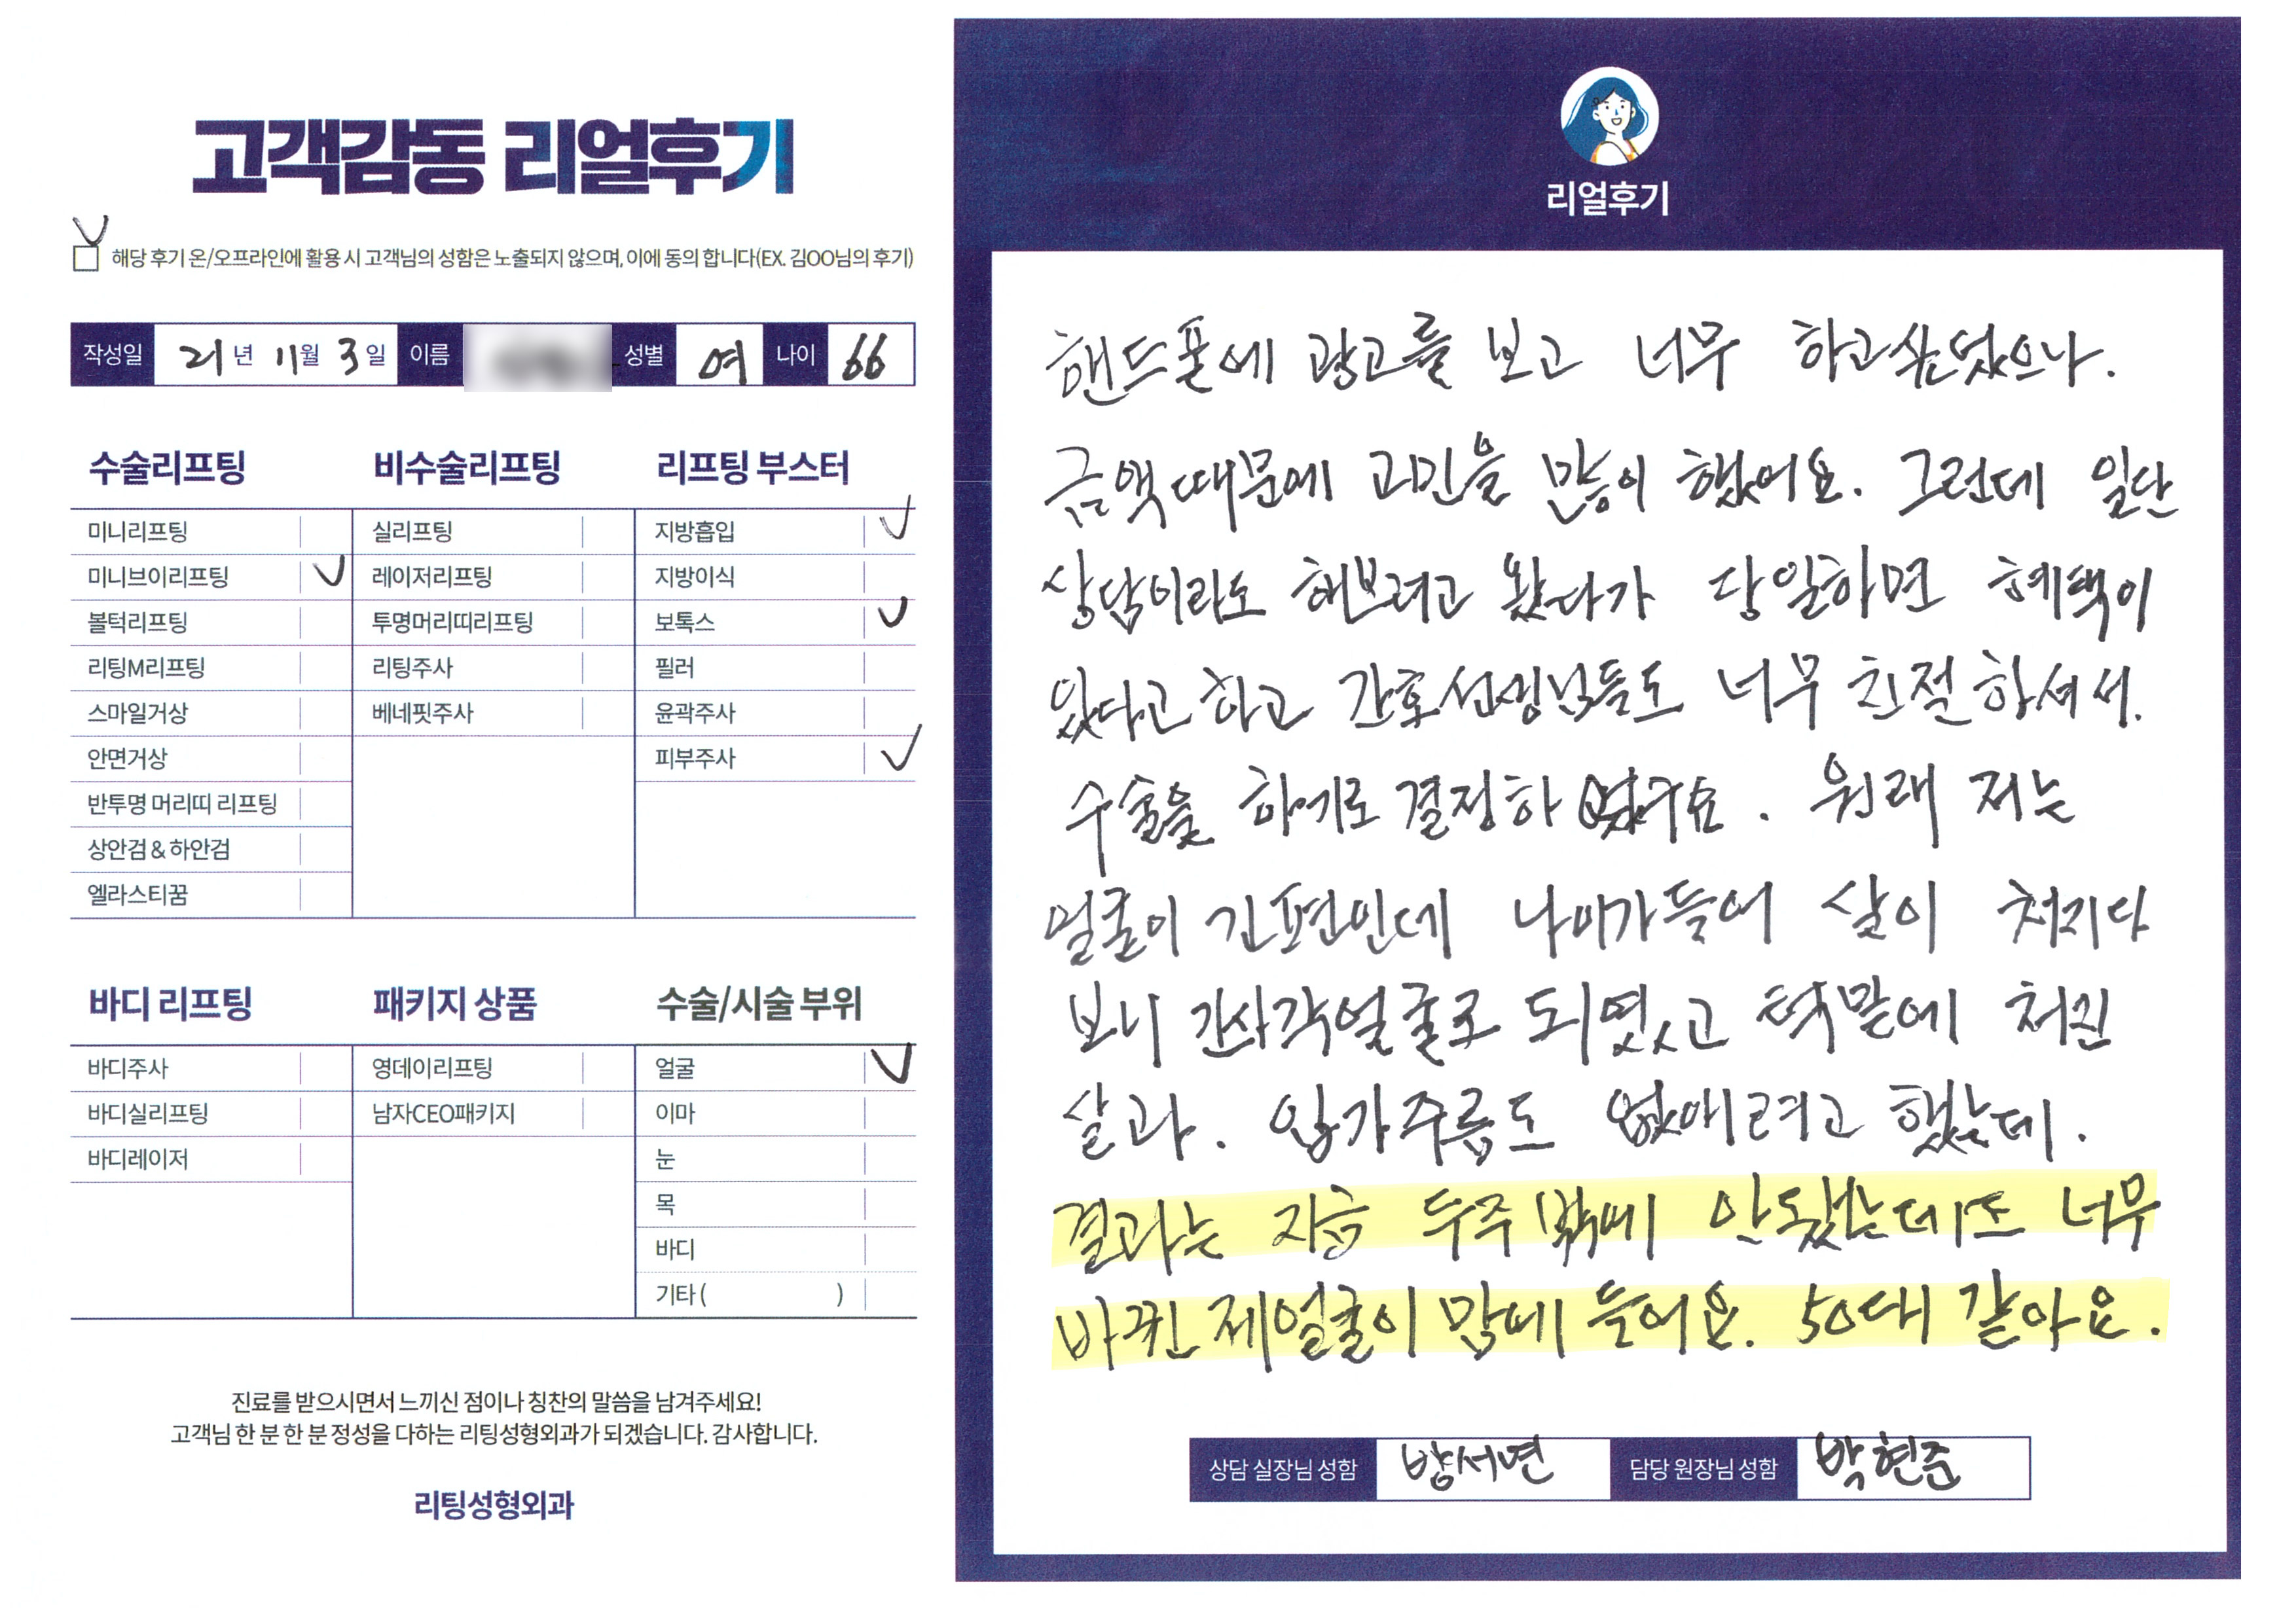 고객감동 리얼후기
해당 후기 온/오프라인에 활용 시 고객님의 성함은 노출되지 않으며, 이에 동의 합니다(EX. 김OO님의 후기)
작성일 21년 11월 3일 이름 성별 여 나이 66
수술리프팅
미니리프팅
미니브이리프팅
볼턱리프팅
리팅M리프팅
스마일거상
안면거상
반투명 머리띠 리프팅
상안검 & 하안검
엘라스티꿈
비수술리프팅
실리프팅
레이저리프팅
투명머리띠리프팅
리팅주사
베네핏주사
리프팅 부스터
지방흡입
지방이식
보톡스
필러
윤곽주사
피부주사
바디 리프팅
바디주사
바디실리프팅
바디레이저
패키지 상품
영데이리프팅
남자CEO패키지
수술/시술 부위
얼굴
이마
눈
목
바디
기타 ( )
진료를 받으시면서 느끼신 점이나 칭찬의 말씀을 남겨주세요!
고객님 한 분 한 분 정성을 다하는 리팅성형외과가 되겠습니다. 감사합니다.
리팅성형외과
리얼후기
핸드폰에 광고를 보고 너무 하고싶었으나.
금액때문에 고민을 많이 했어요. 그런데 일단
상담이라도 해보려고 왔다가 당일하면 혜택이
있다고 하고 간호선생님들도 너무 친절하셔서.
수술을 하기로 결정하였구요. 원래 저는
얼굴이 긴편인데 나이가들어 살이 처지다
보니 간사각얼굴로 되였고 턱밑에 처진
살과. 입가주름도 없애려고 했는데.
결과는 지금 두주밖에 안됐는데도 너무
바뀐 제얼굴이 맘에 들어요. 50대 같아요.
상담 실장님 성함 방서연 담당 원장님 성함 박현준